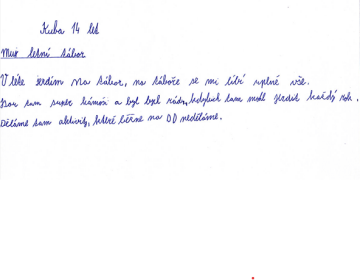 Kuba 14 let
Můj letní tábor
V létě jezdím na tábor, na táboře se mi líbí úplně vše.
Jsou tam super kámoši a byl bych rád, kdybych tam mohl jezdit každý rok.
Děláme tam aktivity, které běžně na DD neděláme.